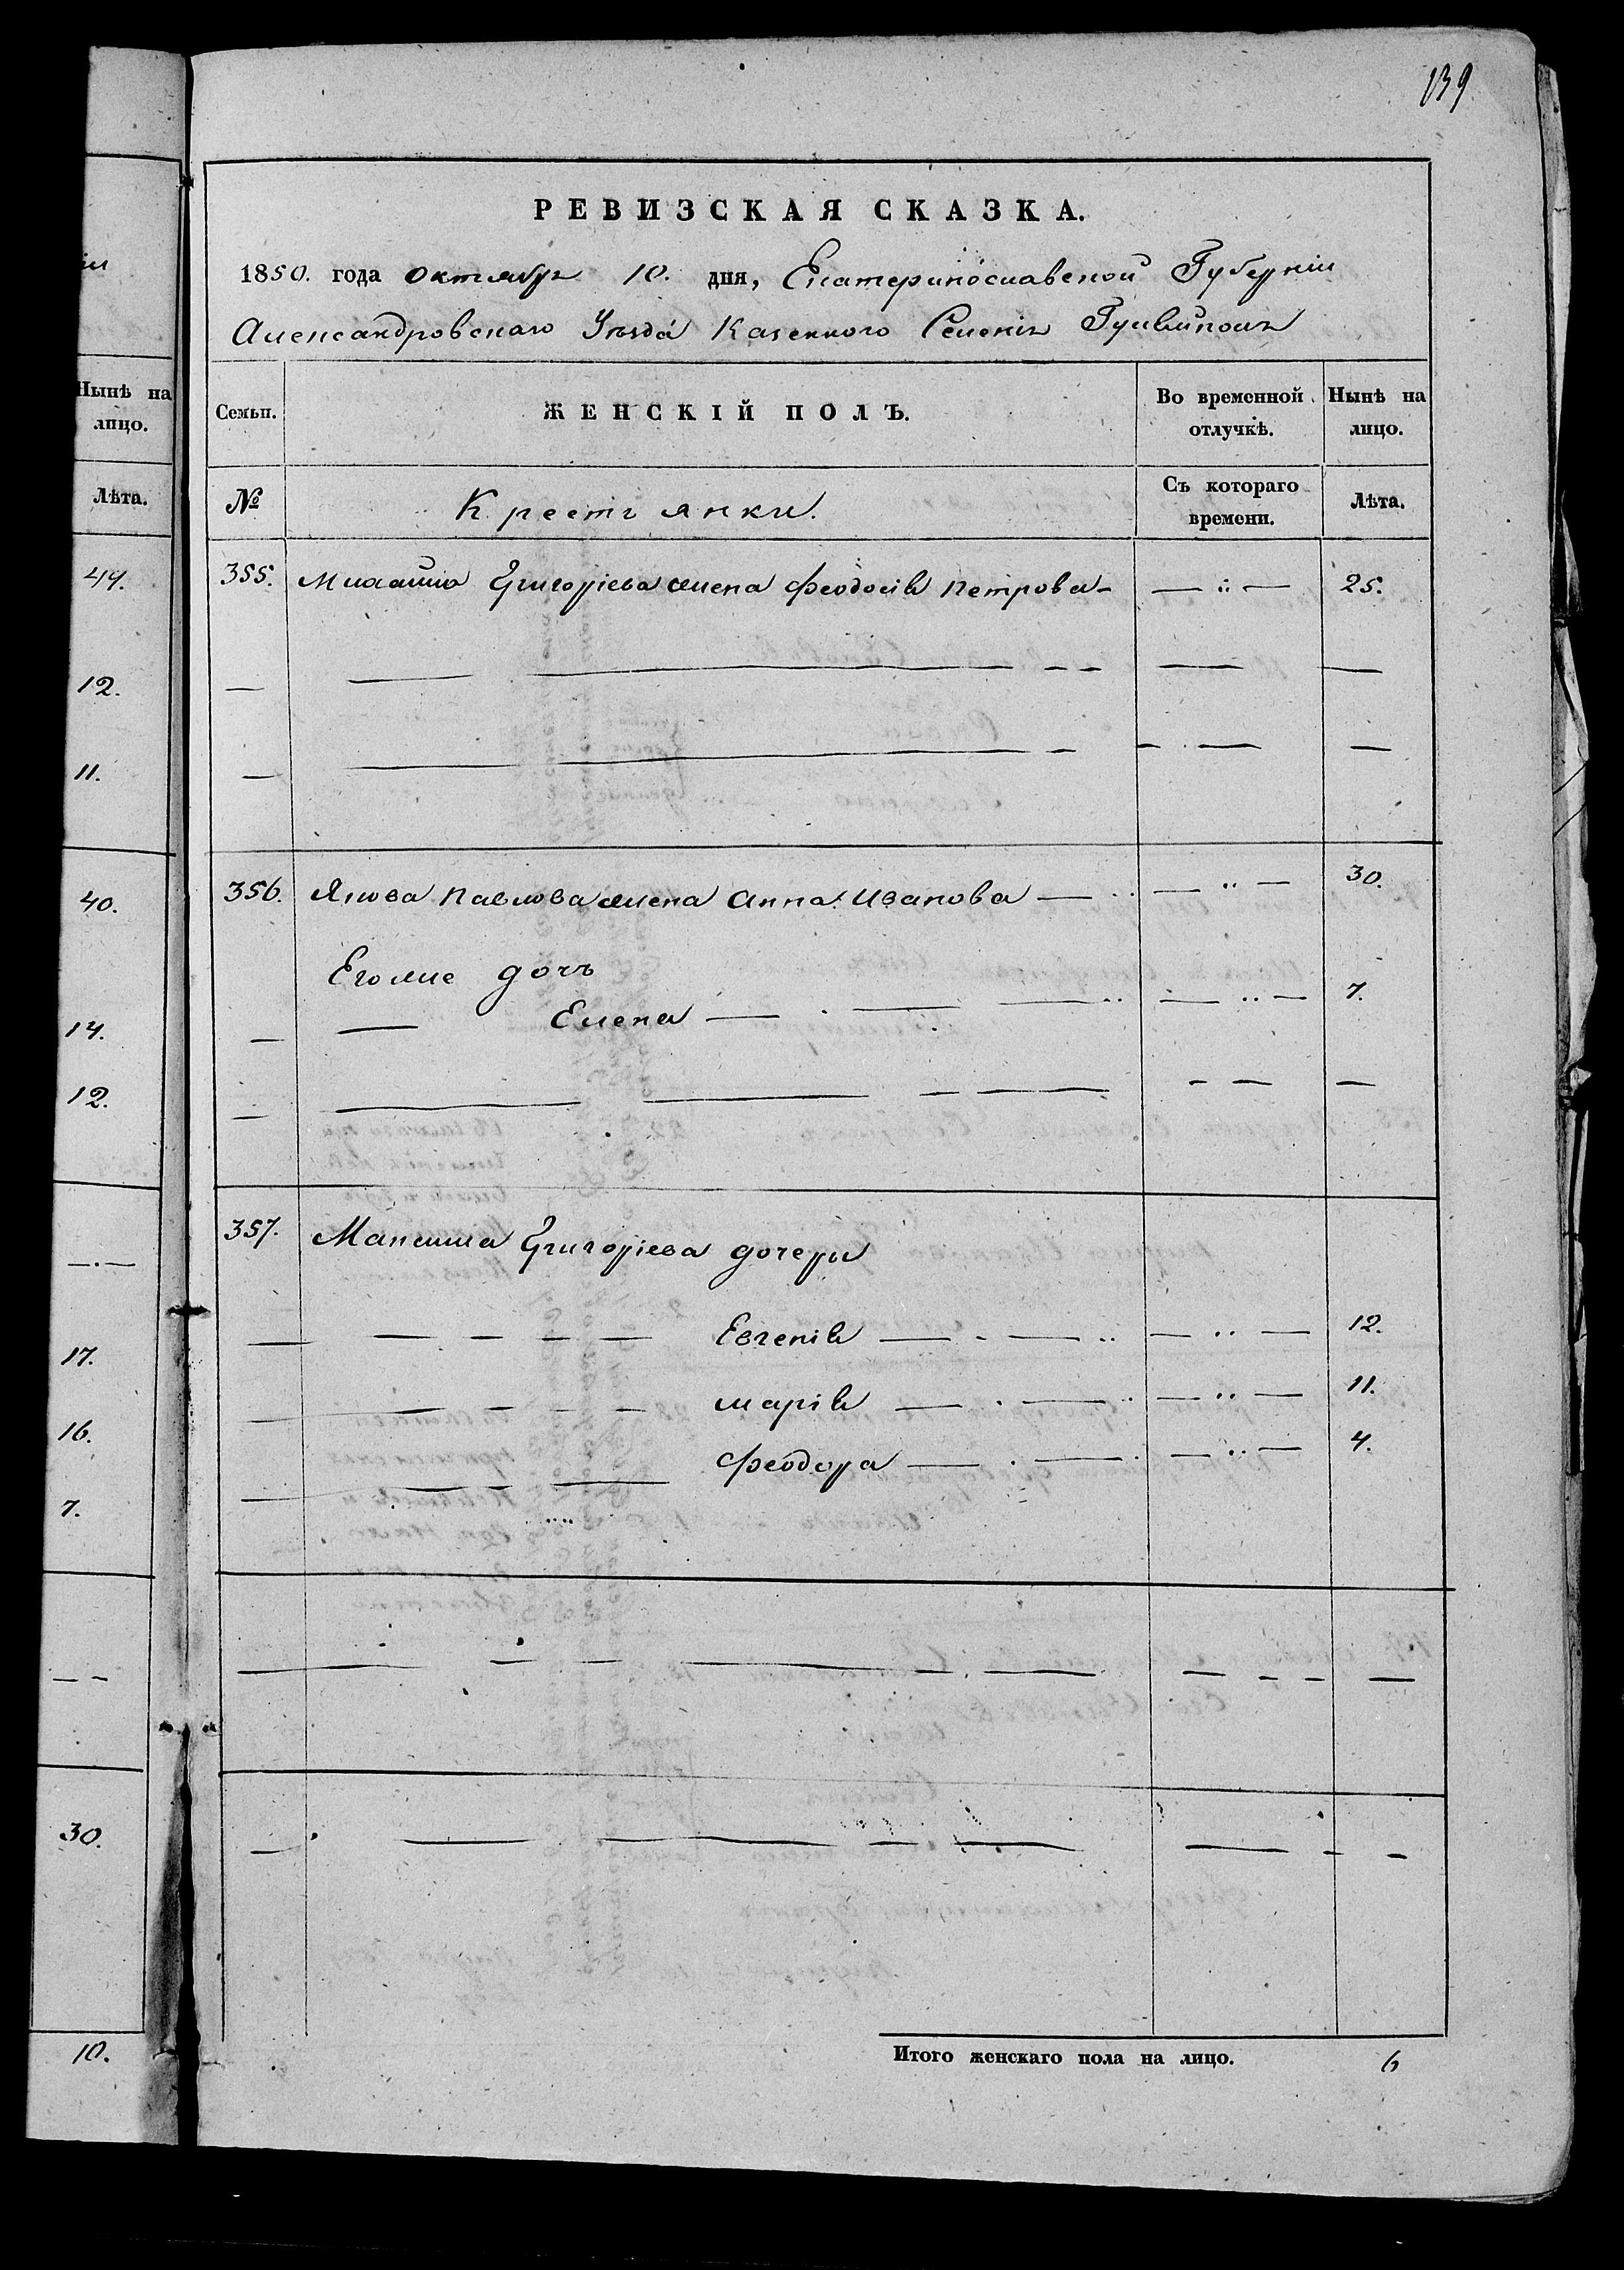 139
РЕВИЗСКАЯ СКАЗКА.
1850. года октября 10. дня, Екатеринославской Губерніи
Александровскаго Уезда Казенного Селенія
Нынѣ на лицо.
Лѣта.
44.
12.
11.
40.
14.
12.
17.
16.
7.
30.
10.
Семьи. ЖЕНСКІЙ ПОЛЪ. Во временной отлучкѣ. Нынѣ на лицо.
№ Крестьянки. Съ котораго времени. Лѣта.
355. Михайла Григоріева жена Феодосія Петрова 25.
356. Якова Павлова жена Анна Иванова 30.
Его же дочь
Елена 7.
357. Максима Григоріева дочери
Евгенія 12.
Марія 11.
Феодора 4.
Итого женскаго пола на лицо. 6